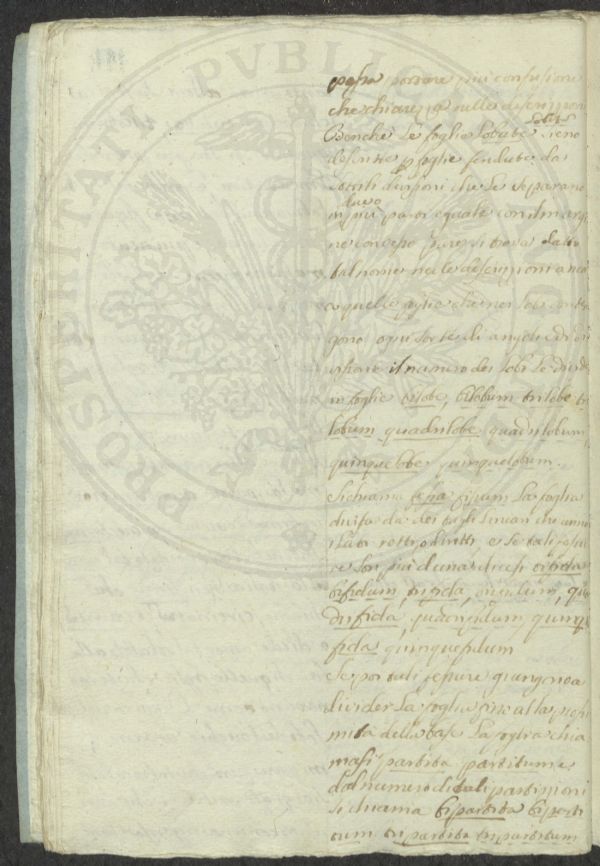 PROSPERITATI PVBLICAE
possa portare più confusione
che chiarezza nelle descrizioni
Benche le foglie Lobate sieno
definite foglie fendute da
che le separano
in più parti eguali con il margi
ne convesso pure si trova dato
tal nome nelle descrizioni anco
a quelle foglie che nei lobi conten
gono ogni sorte di angoli e di
il numero dei lobi le divide
in foglie bilobe, bilobum trilobe tri
lobum quadrilobe quadrilobum,
quinquelobe quinquelobum.
Si chiama fessa fissum La foglia
divisa da dei tagli Lineari che anno
i lati retti o diritti e se tali fessu
re son più d'una dicesi bifida
bifidum, trifida, trifidum, qua
drifida, quadrifidum quinque
fida quinquefidum
Se poi tali fessure giungono a
divider La foglia fino alla prossi
mità della base La foglia chia
masi partita partitum e
dal numero di tali partizioni
si chiama bipartita biparti
tum tripartita tripartitum